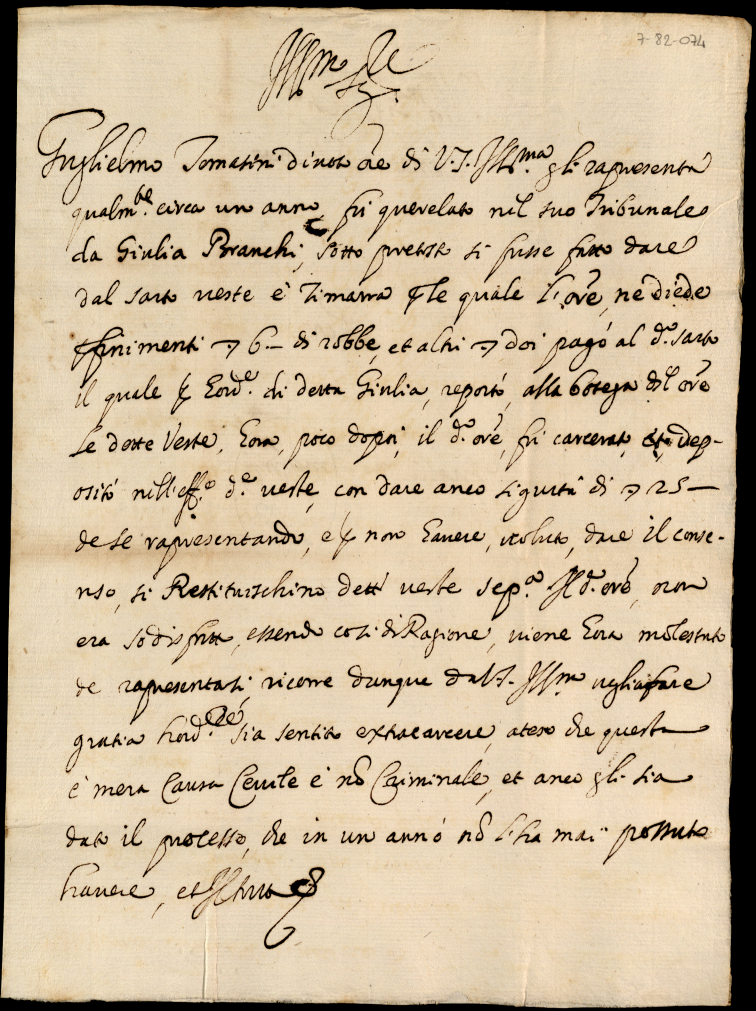 7-82-074
Ill.mo Sre
Guglielmo Tomasini divoto ore di V.S. Ill.ma gli rapresenta
qualm.te circa un anno, fu querelato nel suo Tribunale
da Giulia Branchi, sotto pretesto si fusse fatto dare
dal sarto veste è Zimarra le quale l'ore, ne diede
finimenti 6 – di robbe, et altri doi pagò al d.o sarto
il quale hord.e di detta Giulia, reportò, alla botega del ore
le dette Veste, hora, poco dopoi, il d.o ore, fù carcerato, et dep-
ositò nell'eff.o d.e veste, con dare anco sigurtà di 25 –
de se rapresentando, e non havere, voluto, dare il conse-
nso, si Restituischino dette veste se p.a Il d.o ore, non
era sodisfatto, essendo cosi di Ragione, viene hora molestato
de rapresentarsi, ricorre dunque da V.S. Ill.ma voglia fare
gratia sia sentito extracarcere, ateso che questa
è mera Causa Cevile è nō Criminale, et anco gli sia
dato il processo, che in un annó nō l'ha mai possuto
havere, et